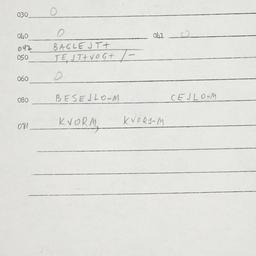 030 0
040 0 042 0
042 BAGLEJT+
050 TE,JT+VOG+ /-
060 0
080 BESEJLO-M CEJLO-M
081 KVORM, KVORJ-M